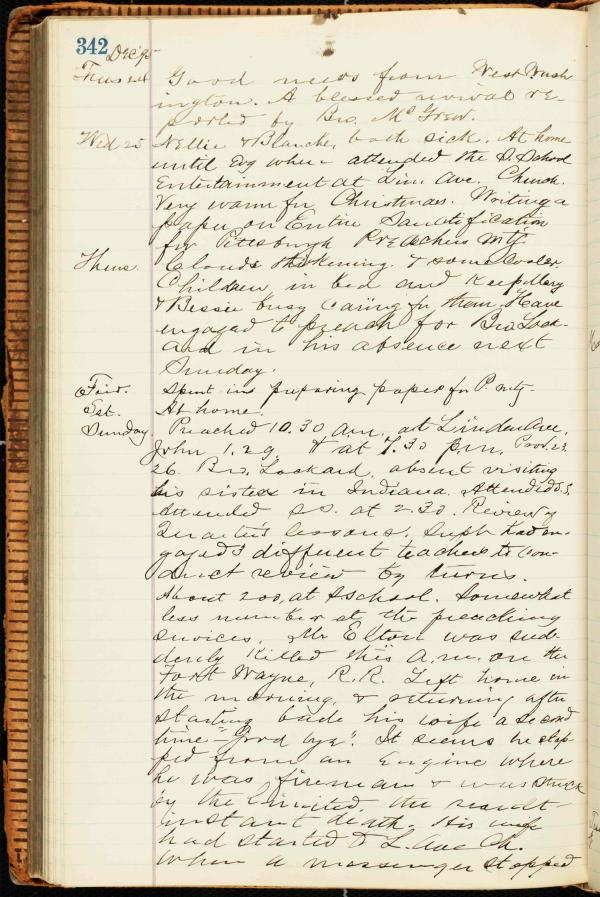 342 Dec 95
Good news from West Wash
ington. A blessed revival re-
ported by Bro. McGrew.
Wed 25 Nellie & Blanche, both sick. At home
until Evg when attended the S. School
Entertainment at Lin. Ave. Church.
Very warm for Christmas. Writing a
paper on Entire Sanctification
for Pittsburgh Preachers Mtg
Thurs. Clouds thickening. & some cooler
Children in bed and keep Mary
& Bessie busy caring for them. Have
engaged to preach for Bro. Lock-
ard in his absence next
Sunday.
Frid. Spent in preparing paper for P. mtg.
Sat. At home.
Sunday. Preached 10.30 a.m. at Linden Ave.
John 1.29. & at 7.30 p.m. Prov. 23.
26. Bro. Lockard, absent visiting
his sister in Indiana. Attended S.S.
Attended S.S. at 2.30. Review of
Quarter's lessons. Supt had en-
gaged different teachers to con-
duct review by turns.
About 200, at S school. Somewhat
less number at the preaching
services. Mr Elton was sud-
denly killed this a.m. on the
Fort Wayne, R.R. Left home in
the morning, & returning after
starting bade his wife a second
time "Good bye". It seems he step-
ped from an Engine where
he was fireman & was struck
by the Limited. the result-
instant death. His wife
had started to L. Ave Ch.
when a messenger stopped